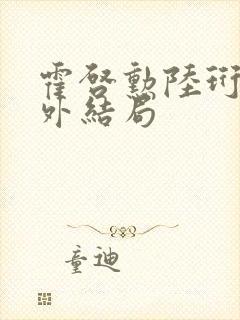 霍啓勳陸珩
外結局
童迪